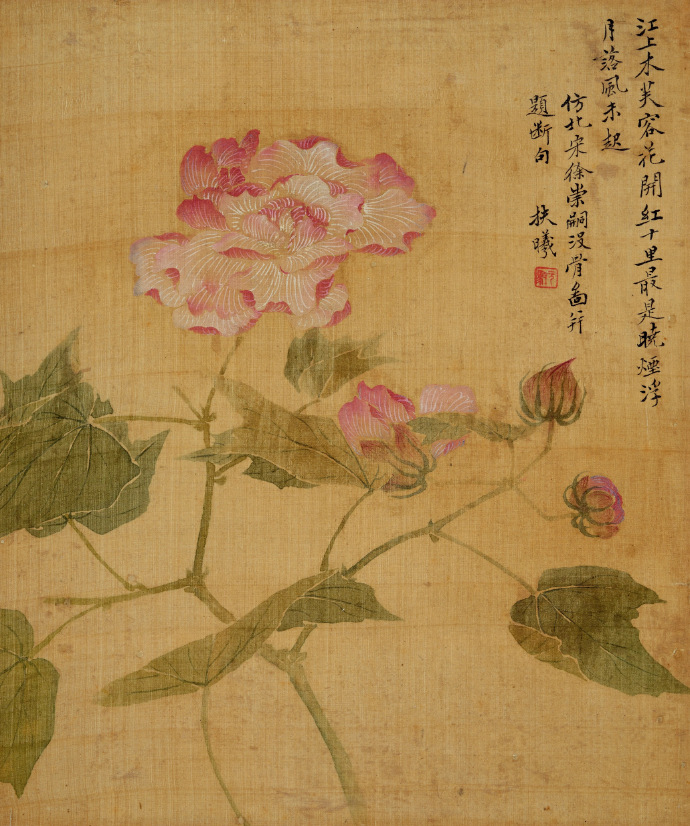 江上木芙容花開紅十里最是曉煙浮
月落風未起
仿北宋徐崇嗣没骨啚并
題斷句 扶曦